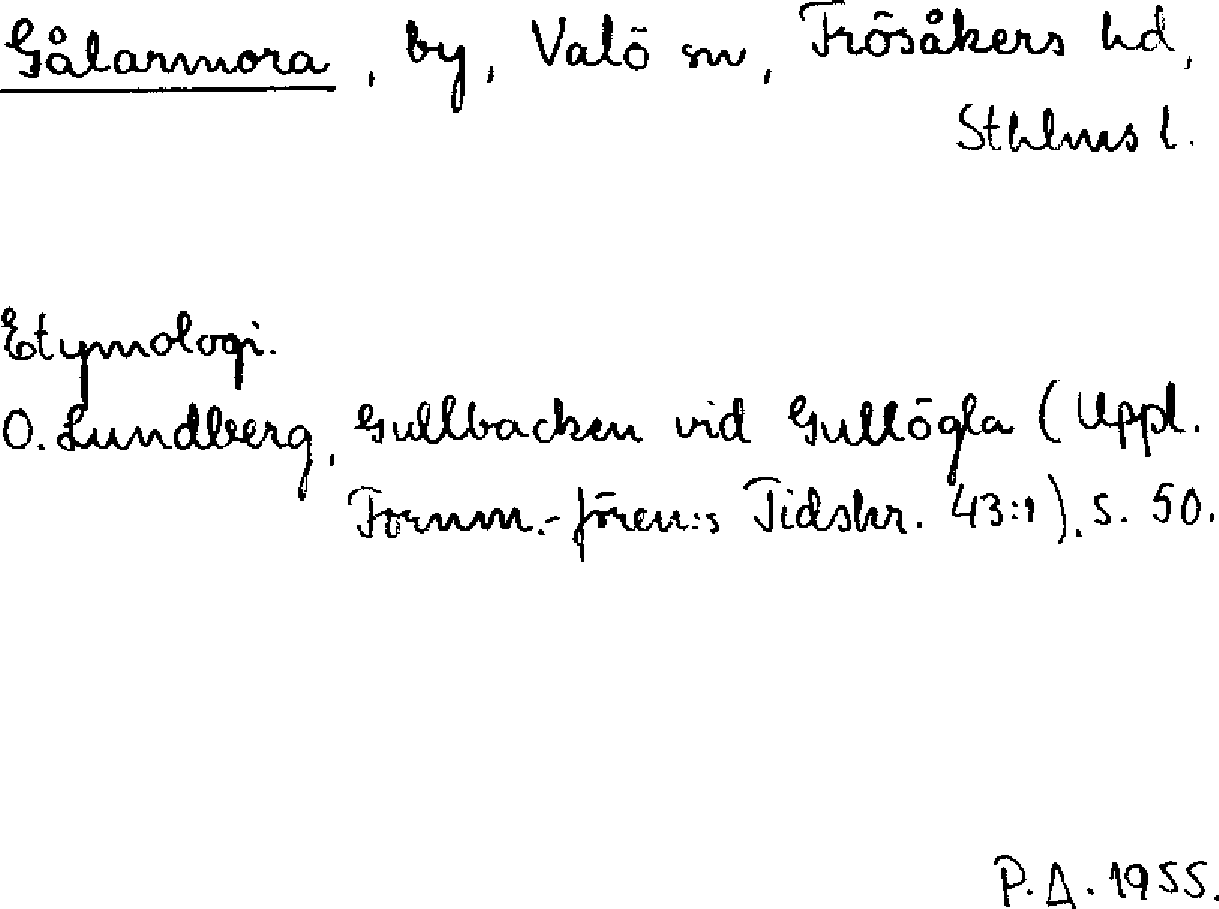 Gålarmora, by, Valö sn, Frösåkers hd,
Sthlms l.
Etymologi.
O. Lundberg, Gullbacken vid Gullögla (Uppl.
Fornm.-fören:s Tidskr. 43:1), s. 50.
P.A. 1955.